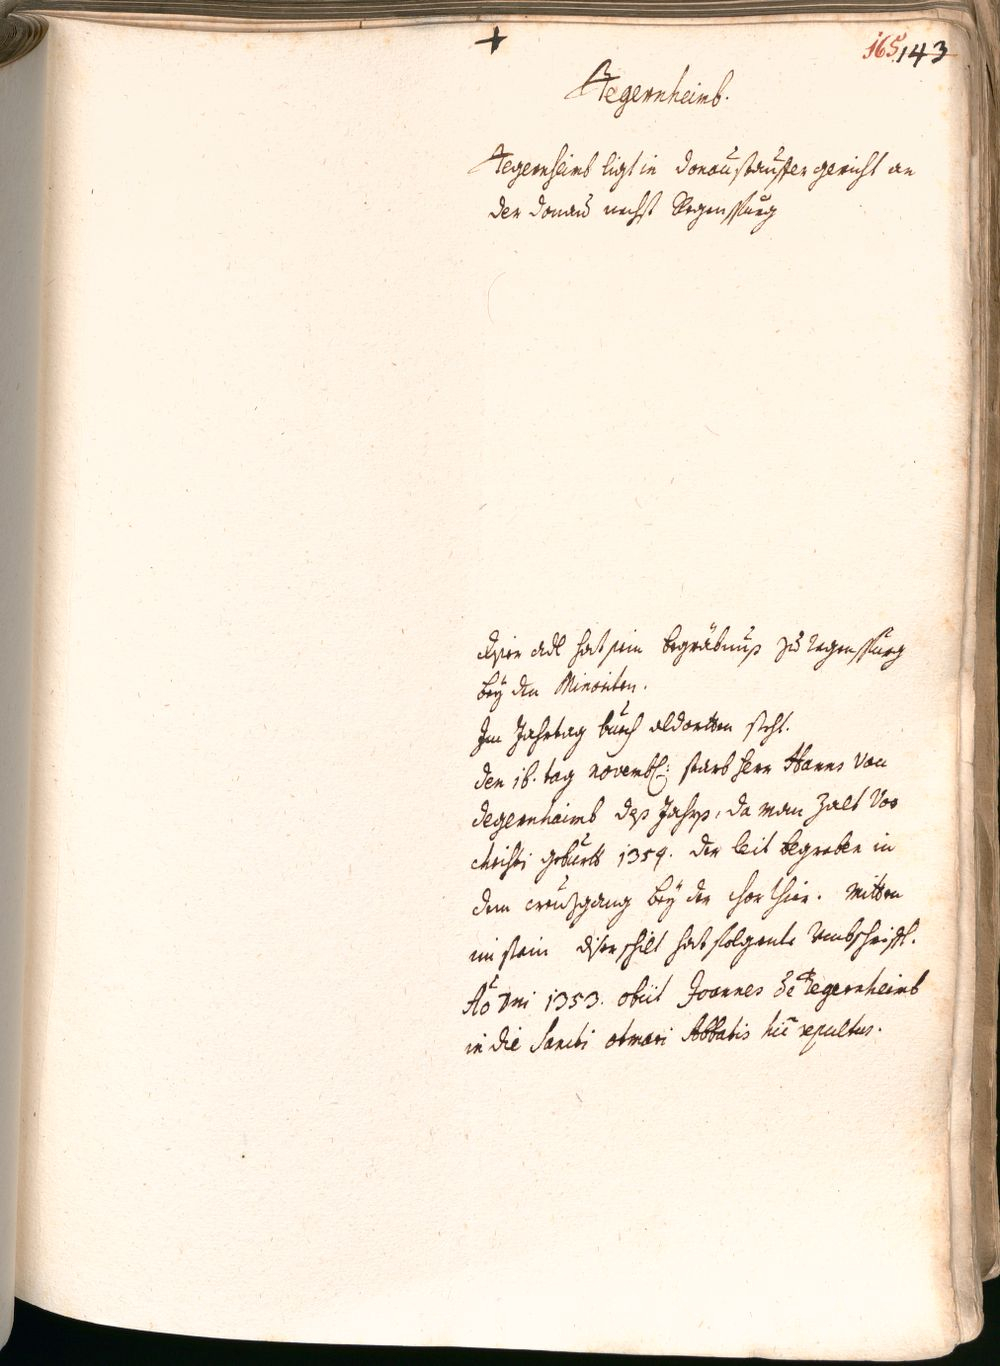 165 143
Tegernheimb.
Tegernheimb ligt in donaustauffer gericht an
der donau nechst Regenspurg
diser adl hat sein begräbnus zu regenspurg
bey den Minoriten.
Im Jahrtag buech aldorten steht.
den 16. tag novemb: starb herr Hanns von
degernhaimb des Jahrs, da man zalt von
christi geburth 1354. der leit begraben in
dem creuzgang bey der chor thür. mitten
im stain diser schilt hat folgente umbschrifft.
Ao Dni 1353. obiit Joannes de Tegernheimb
in die Sancti otmari Abbatis hic sepultus.